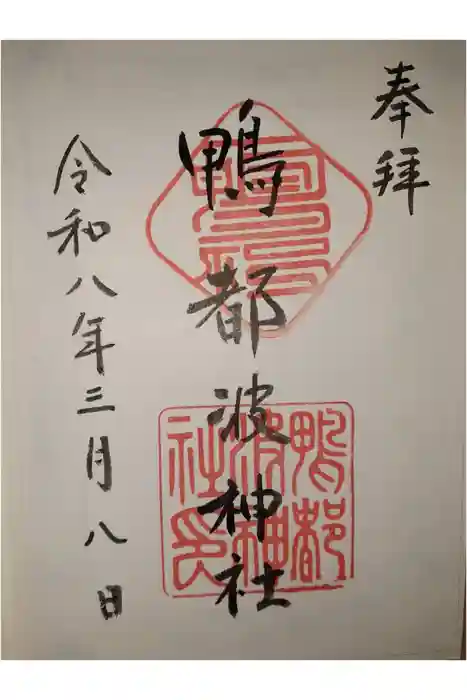 奉拝
鴨都波神社
令和八年三月八日
鴨都
波神
社印